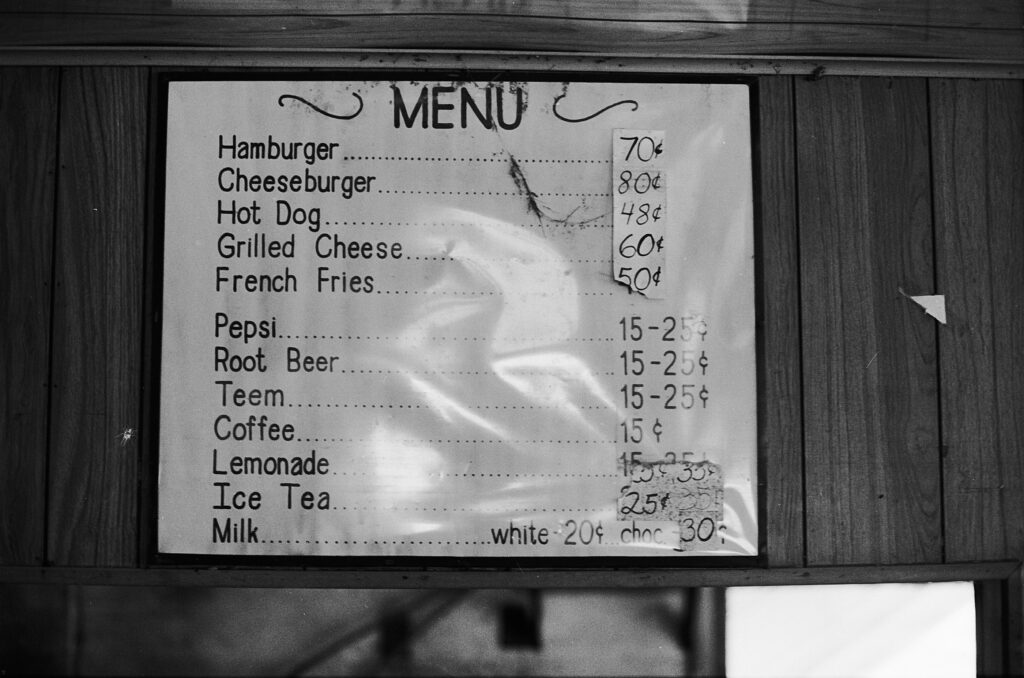 MENU
Hamburger 70¢
Cheeseburger 80¢
Hot Dog 48¢
Grilled Cheese 60¢
French Fries 50¢
Pepsi 15-25¢
Root Beer 15-25¢
Teem 15-25¢
Coffee 15¢
Lemonade
Ice Tea 25¢
Milk white 20¢ choc 30¢